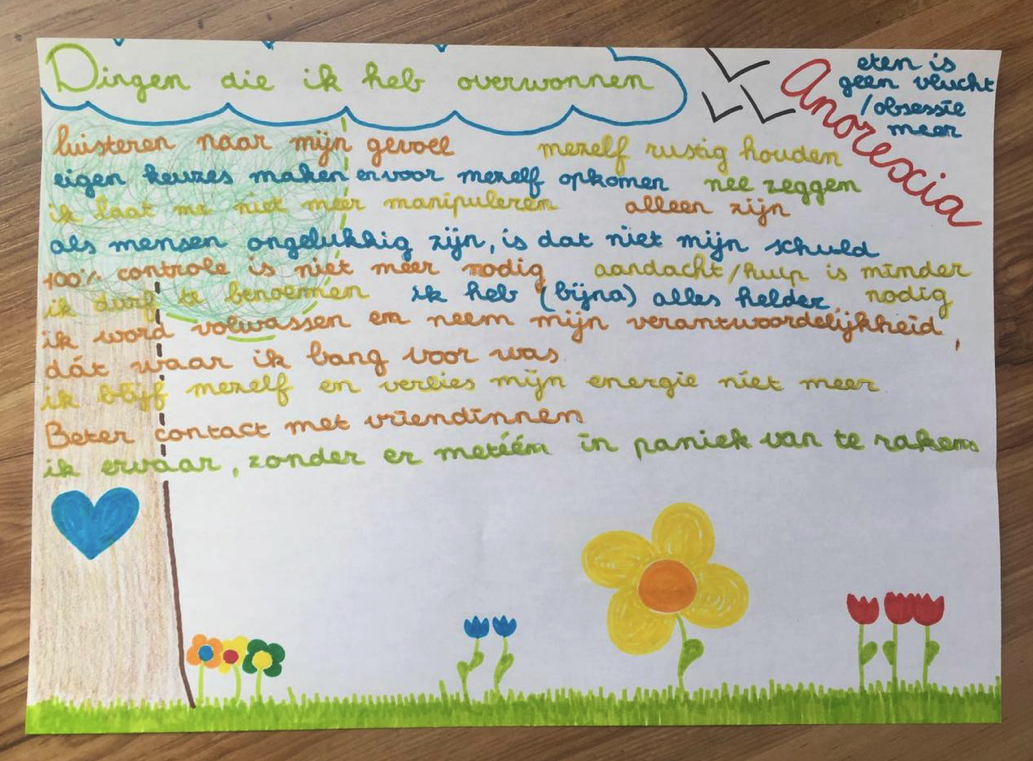 Dingen die ik heb overwonnen
Anorexia
eten is
geen vlucht
/obsessie
meer
luisteren naar mijn gevoel mezelf rustig houden
eigen keuzes maken en voor mezelf opkomen nee zeggen
ik laat me niet meer manipuleren alleen zijn
als mensen ongelukkig zijn, is dat niet mijn schuld
100% controle is niet meer nodig aandacht/hulp is minder
ik durf te benoemen ik heb (bijna) alles helder nodig
ik word volwassen en neem mijn verantwoordelijkheid,
dát waar ik bang voor was
ik blijf mezelf en verlies mijn energie niet meer
Beter contact met vriendinnen
ik ervaar, zonder er metéém in paniek van te raken